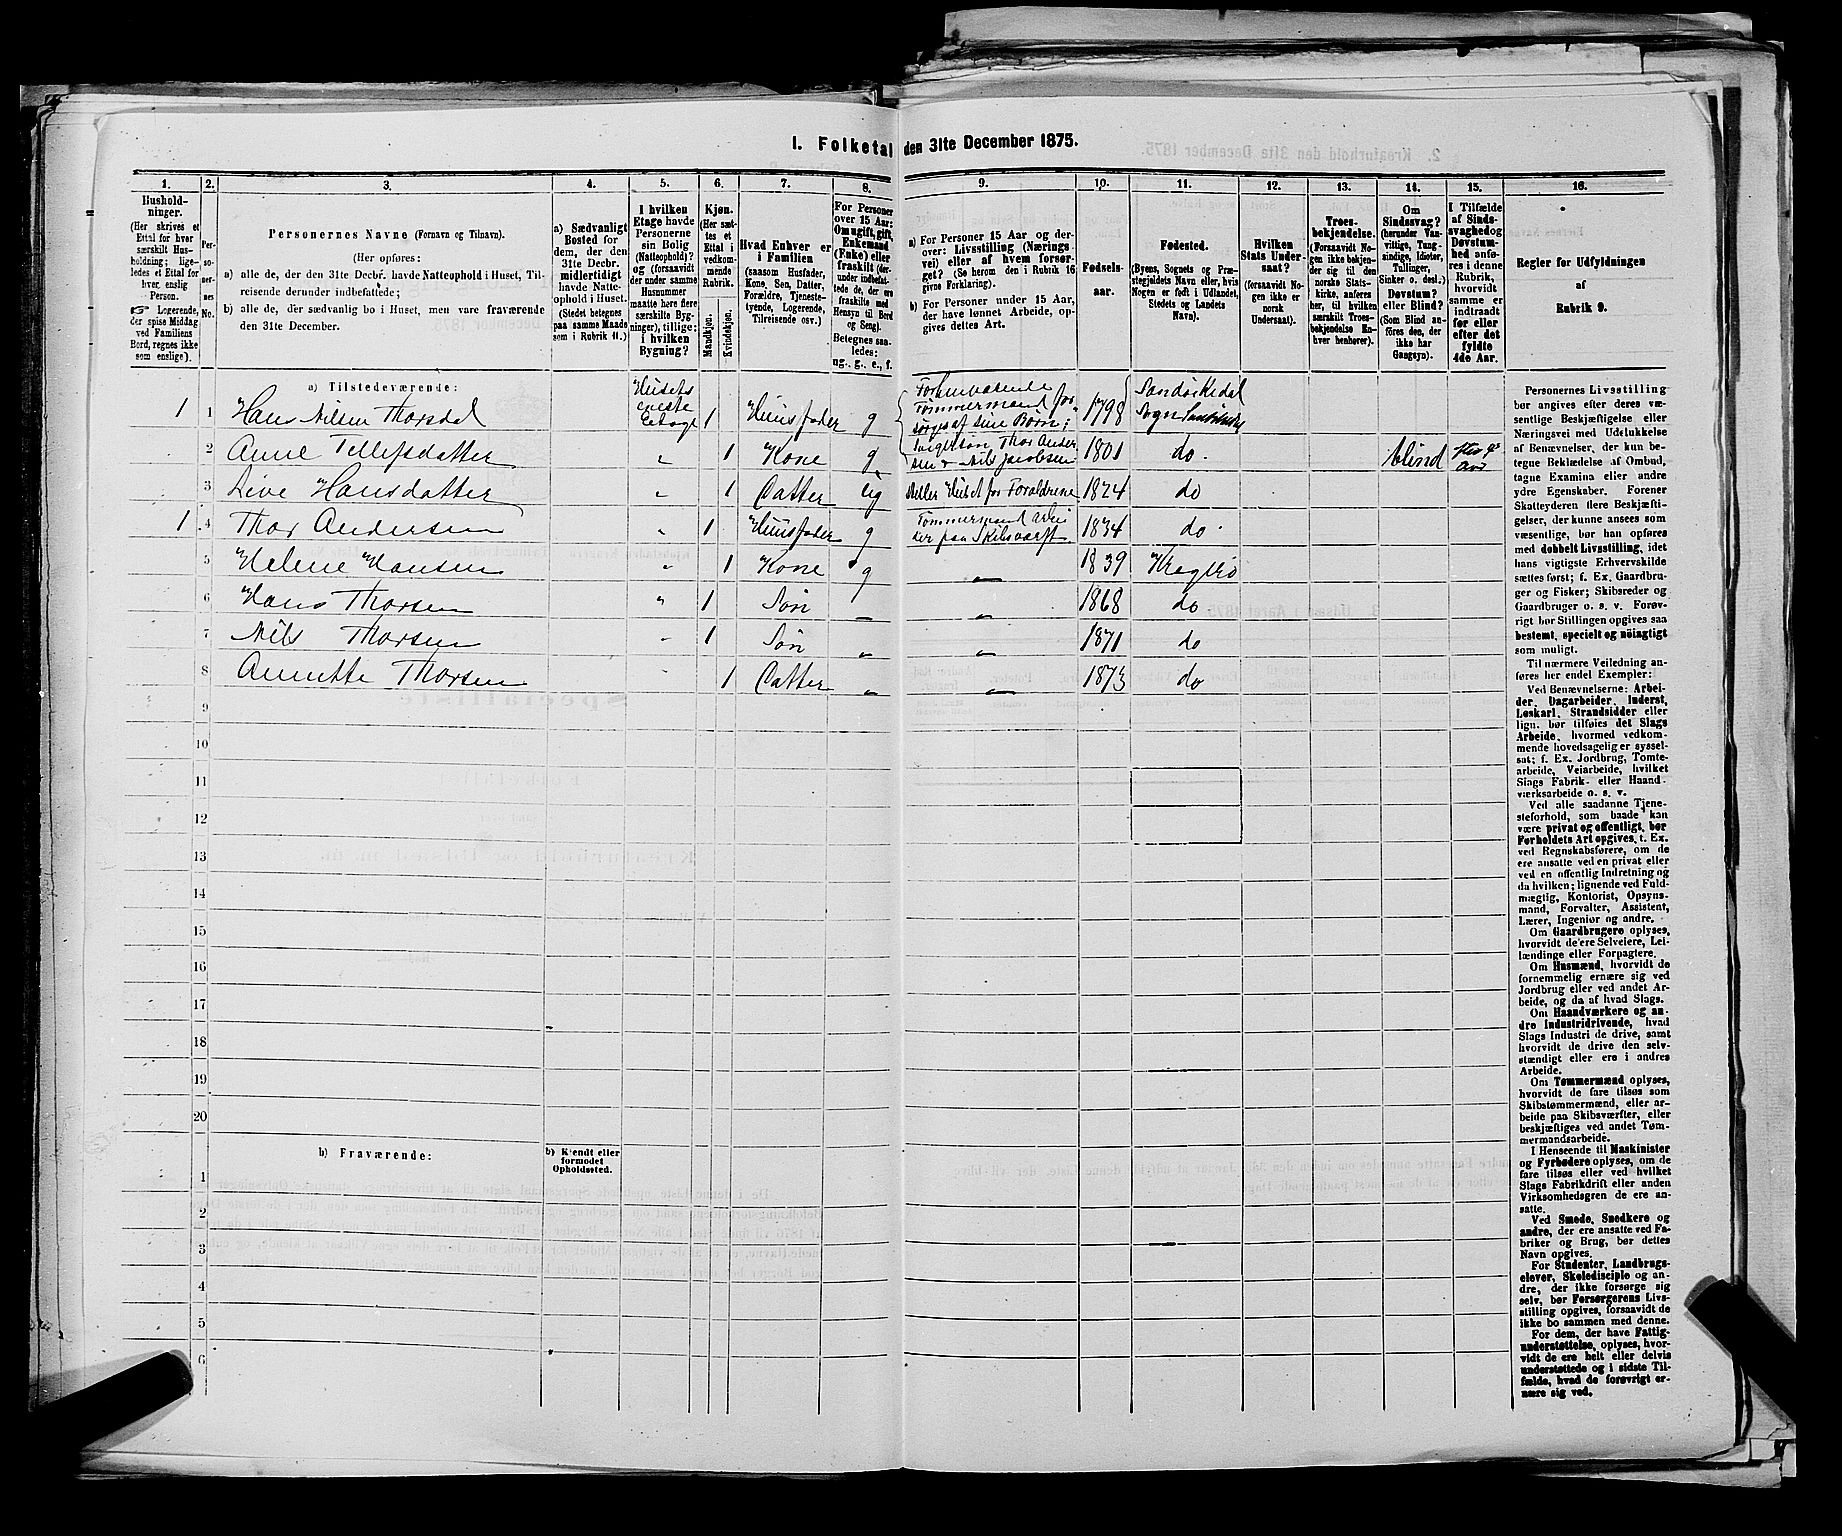 I. Folketal den 31te December 1875.
1. 2. 3. 4. 5. 6. 7. 8. 9. 10. 11. 12. 13. 14. 15. 16.
Hushold-
ninger.
(Her skrives et
Ettal for hver
særskilt Hus-
holdning; lige-
ledes et Ettal for
hver enslig
Person.
☞ Logerende,
der spise Middag
ved Familiens
Bord, regnes ikke
som enslige).
Per-
so-
ner-
nes
No.
Personernes Navne (Fornavn og Tilnavn).
(Her opføres:
a) alle de, der den 31te Decbr. havde Natteophold i Huset, Til-
reisende derunder indbefattede;
b) alle de, der sædvanlig bo i Huset, men vare fraværende
den 31te December.
a) Sædvanligt
Bosted for
dem, der den
31te Decbr.
midlertidigt
havde Natte-
ophold i Huset.
(Stedet betegnes
paa samme Maade
som i Rubrik 11.)
I hvilken
Etage havde
Personerne
sin Bolig
(Natteophold)?
og (forsaavidt
der under samme
Husnummer
maatte høre flere
særskilte Byg-
ninger), tillige:
i hvilken
Bygning?
Kjøn.
(Her sæt-
tes et
Ettal i
vedkom-
mende
Rubrik.
Mandkjøn.
Kvindekjøn.
Hvad Enhver er
i Familien
(saasom Husfader,
Kone, Søn, Datter,
Forældre, Tjeneste-
tyende, Logerende,
Tilreisende osv.)
For Personer
over 15 Aar:
Om ugift, gift,
Enkemand
(Enke) eller
fraskilt (der-
under indbefat-
tede de, der ere
fraskilte med
Hensyn til Bord
og Seng).
Betegnes saa-
ledes:
ug., g., e., f.
a) For Personer 15 Aar og der-
over: Livsstilling (Nærings-
vei) eller af hvem forsør-
get? (Se herom den i Rubrik 16
givne Forklaring).
b) For Personer under 15 Aar,
der have lønnet Arbeide, op-
gives dettes Art.
Fødsels-
aar.
Fødested.
(Byens, Sognets og Præ-
stegjeldets Navn eller, hvis
Nogen er født i Udlandet,
Stedets og Landets
Navn).
Hvilken
Stats Under-
saat?
(forsaavidt No-
gen ikke er
norsk
Undersaat).
Troes-
bekjendelse.
(Forsaavidt No-
gen ikke bekjen-
der sig til den
norske Stats-
kirke, anføres
her, til hvilken
særskilt Troes-
bekjendelse En-
hver henhører).
Om
Sindssvag?
(herunder Van-
vittige, Tung-
sindige, Idioter,
Tullinger,
Sinker o. desl.)
Døvstum?
eller Blind?
(Som Blind an-
føres den, der
ikke har
Gangsyn).
I Tilfælde
af Sinds-
svaghed og
Døvstum-
hed anfø-
res i denne
Rubrik,
hvorvidt
samme er
indtraadt
før eller
efter det
fyldte
4de Aar.
Regler for Udfyldningen
af
Rubrik 9.
a) Tilstedeværende:
1 1 Hans Nilsen Thorsdal Husets eneste Etage 1 Huusfader g Forhenværende Tømmermand forsørges af sine Børn; 1798 Sandøkedal Sogn
2 Anne Tellefsdatter „ 1 Kone g Thor Andersen & Nils Jacobsen 1801 do. blind
3 Live Hansdatter „ 1 Datter ug steller Huset for Forældrene 1824 do
1 4 Thor Andersen „ 1 Huusfader g Tømmermand arbeider paa Skibsværft 1834 do.
5 Helene Hansen „ 1 Kone g „ 1839 Kragerø
6 Hans Thorsen „ 1 Søn „ „ 1868 do
7 Nils Thorsen „ 1 Søn „ „ 1871 do
8 Annette Thorsen „ 1 Datter „ „ 1873 do
9
10
11
12
13
14
15
16
17
18
19
20
b) Fraværende:
b) Kjendt eller
formodet
Opholdssted.
1
2
3
4
5
6
Personernes Livsstilling
bør angives efter deres væ-
sentlige Beskjæftigelse eller
Næringsvei med Udelukkelse
af Benævnelser, der kun be-
tegne Beklædelse af Ombud,
tagne Examina eller andre
ydre Egenskaber. Forener
Skatteyderen flere Beskjæfti-
gelser, der kunne ansees som
væsentlige, bør han opføres
med dobbelt Livsstilling, idet
hans vigtigste Erhvervskilde
sættes først; f. Ex. Gaardbru-
ger og Fisker; Skibsreder og
Gaardbruger o. s. v. Forøv-
rigt bør Stillingen opgives saa
bestemt, specielt og nøiagtigt
som muligt.
Til nærmere Veiledning an-
føres her endel Exempler:
Ved Benævnelserne: Arbei-
der, Dagarbeider, Inderst,
Løskarl, Strandsidder eller
lign. bør tilføies det Slags
Arbeide, hvormed vedkom-
mende hovedsagelig er syssel-
sat; f. Ex. Jordbrug, Tomte-
arbeide, Veiarbeide, hvilket
Slags Fabrik- eller Haand-
værksarbeide o. s. v.
Ved alle saadanne Tjene-
steforhold, som baade kan
være privat og offentligt, bør
Forholdets Art opgives, t. Ex.
ved Regnskabsførere, om de
ere ansatte ved en privat eller
ved en offentlig Indretning og
da hvilken; lignende ved Fuld-
mægtig, Kontorist, Opsyns-
mand, Forvalter, Assistent,
Lærer, Ingeniør og andre.
Om Gaardbrugere oplyses,
hvorvidt de ere Selveiere, Lei-
lændinge eller Forpagtere.
Om Husmænd, hvorvidt de
fornemmelig ernære sig ved
Jordbrug eller ved andet Ar-
beide, og da af hvad Slags.
Om Haandværkere og an-
dre Industridrivende, hvad
Slags Industri de drive, samt
hvorvidt de drive den selv-
stændigt eller ere i andres
Arbeide.
Om Tømmermænd oplyses,
hvorvidt de fare tilsøs som
Skibstømmermænd, eller ar-
beide paa Skibsværfter, eller
beskjæftiges ved andet Tøm-
mermandsarbeide.
I Henseende til Maskinister
og Fyrbødere oplyses, om de
fare tilsøs eller ved hvilket
Slags Fabrikdrift eller anden
Virksomhedsgren de ere an-
satte.
Ved Smede, Snedkere og
andre, der ere ansatte ved Fa-
briker og Brug, bør dettes
Navn opgives.
For Studenter, Landbrugs-
elever, Skoledisciple og an-
dre, der ikke forsørge sig
selv, bør Forsørgerens Livs-
stilling opgives, forsaavidt de
ikke bo sammen med denne.
For dem, der have Fattig-
understøttelse, oplyses, hvor-
vidt de ere helt eller delvis
understøttede og i sidste Til-
fælde, hvad de forøvrigt er-
nære sig ved.